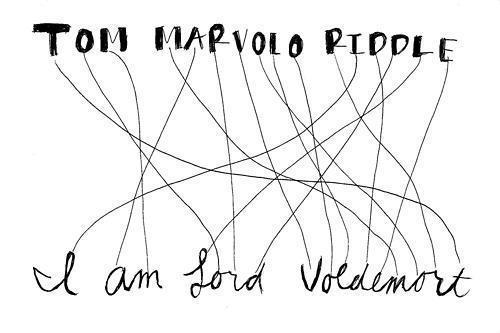 TOM MARVOLO RIDDLE
I am Lord Voldemort